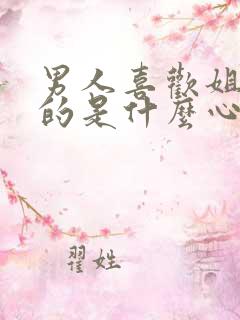 男人喜歡姐
的是什麼心
翟姓